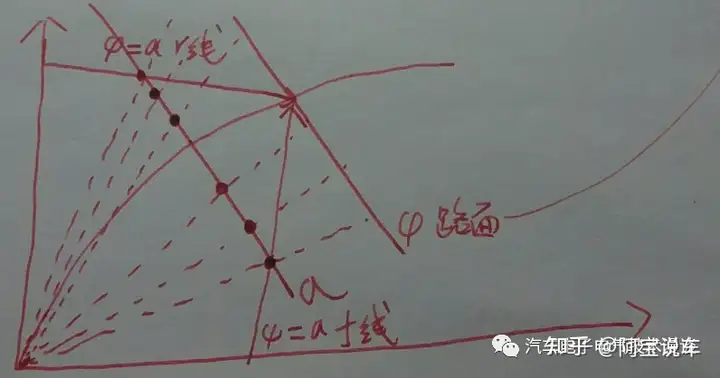 φ=a r线
φ路面
a
φ=a f线
知乎 @阿宝说车